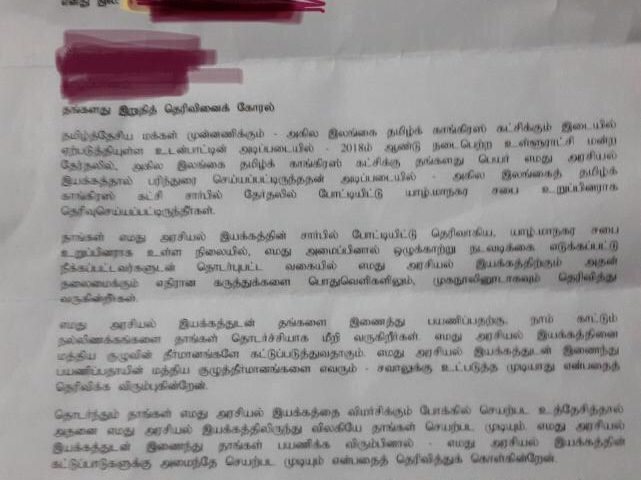 எமது இல:
தங்களது இறுதித் தெரிவினைக் கோரல்
தமிழ்த்தேசிய மக்கள் முன்னணிக்கும் - அகில இலங்கை தமிழ்க் காங்கிரஸ் கட்சிக்கும் இடையில்
ஏற்படுத்தியுள்ள உடன்பாட்டின் அடிப்படையில் - 2018ம் ஆண்டு நடைபெற்ற உள்ளூராட்சி மன்ற
தேர்தலில், அகில இலங்கை தமிழ்க் காங்கிரஸ் கட்சிக்கு தங்களது பெயர் எமது அரசியல்
இயக்கத்தால் பரிந்துரை செய்யப்பட்டிருந்ததன் அடிப்படையில் - அகில இலங்கைத் தமிழ்க்
காங்கிரஸ் கட்சி சார்பில் தேர்தலில் போட்டியிட்டு யாழ்.மாநகர சபை உறுப்பினராக
தெரிவுசெய்யப்பட்டிருந்தீர்கள்.
தாங்கள் எமது அரசியல் இயக்கத்தின் சார்பில் போட்டியிட்டு தெரிவாகிய, யாழ்.மாநகர சபை
உறுப்பினராக உள்ள நிலையில், எமது அமைப்பினால் ஒழுக்காற்று நடவடிக்கை எடுக்கப்பட்டு
நீக்கப்பட்டவர்களுடன் தொடர்புபட்ட வகையில் எமது அரசியல் இயக்கத்திற்கும் அதன்
தலைமைக்கும் எதிரான கருத்துக்களை பொதுவெளிகளிலும், முகநூலினூடாகவும் தெரிவித்து
வருகின்றீர்கள்.
எமது அரசியல் இயக்கத்துடன் தங்களை இணைத்து பயணிப்பதற்கு, நாம் காட்டும்
நல்லிணக்கங்களை தாங்கள் தொடர்ச்சியாக மீறி வருகிறீர்கள் எமது அரசியல் இயக்கத்தினை
மத்திய குழுவின் தீர்மானங்களே கட்டுப்படுத்துவதாகும். எமது அரசியல் இயக்கத்துடன் இணைந்து
பயணிப்பதாயின் மத்திய குழுத்தீர்மானங்களை எவரும் - சவாலுக்கு உட்படுத்த முடியாது என்பதைத்
தெரிவிக்க விரும்புகின்றேன்.
தொடர்ந்தும் தாங்கள் எமது அரசியல் இயக்கத்தை விமர்சிக்கும் போக்கில் செயற்பட உத்தேசித்தால்
அதனை எமது அரசியல் இயக்கத்திலிருந்து விலகியே தாங்கள் செயற்பட முடியும். எமது அரசியல்
இயக்கத்துடன் இணைந்து தாங்கள் பயணிக்க விரும்பினால் - எமது அரசியல் இயக்கத்தின்
கட்டுப்பாடுகளுக்கு அமைந்தே செயற்பட முடியும் என்பதைத் தெரிவித்துக் கொள்கின்றேன்.